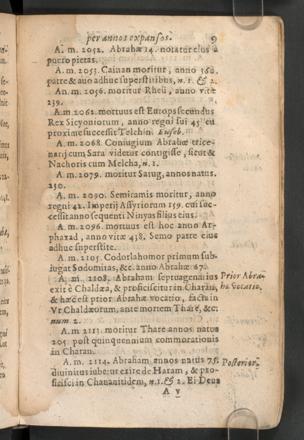 per annos expansos. 9
A. m. 2052. Abrahæ 14. notatur eius à
puero pietas.
A. m. 2053. Cainan moritur, anno
patre & auo adhuc superstitibus, n. 1. & 2.
An. m. 2056. moritur Rheu, anno vitæ
239.
A. m. 2062. mortuus est Europs secundus
Rex Sicyoniorum, anno regni sui 45. cu
proxime successit Telchin. Euseb.
A. m. 2068. Coniugium Abrahæ trice-
narij cum Sara videtur contigisse, sicut &
Nachoris cum Melcha, n. 2.
A. m. 2079. moritur Sarug, annos natus.
230.
A. m. 2090. Semiramis moritur, anno
regni 42. Imperij Assyriorum 159. cui suc-
cessit anno sequenti Ninyas filius eius.
A. m. 2096. mortuus est hoc anno Ar-
phaxad, anno vitæ 438. Semo patre eius
adhuc superstite.
A. m. 2105. Codorlahomor primum sub-
iugat Sodomitas, &c. anno Abrahæ 67.
A. m. 2108. Abraham septuagenarius
exit è Chaldæa, & proficiscitur in Charan,
& hæc est prior Abrahæ vocatio, facta in
Vr Chaldæorum, ante mortem Thare, &c.
num 2.
A. m 2113. moritur Thare annos natus
205. post quinquennium commorationis
in Charan.
A. m. 2114. Abraham annos natus 75.
diuinitus iubetur exire de Haram, & pro-
ficisci in Chananitidem, n. 1. & 2. Ei Deus
A v
Prior Abra-
hæ Vocatio.
Posterior.